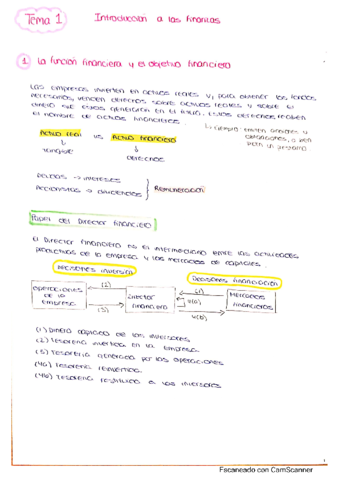 Tema 1
Introducción a las finanzas
1. la función financiera y el objetivo financiero
Las empresas invierten en activos reales y, para obtener los fondos
necesarios, venden derechos sobre activos reales y sobre el
dinero que estos generarán en el futuro. Estos derechos reciben
el nombre de activos financieros.
Activo real vs Activo financiero
tangible
derechos
Deudas → intereses
Accionistas → dividendos
Remuneración
Papel del Director financiero
El Director financiero es el intermediario entre las actividades
productivas de la empresa y los mercados de capitales.
Decisiones inversión
Decisiones financiación
operaciones
de la
empresa
(2)
(3)
Director
financiero
(1)
4(a)
4(b)
Mercados
financieros
(1) Dinero captado de los inversores
(2) Tesorería invertida en la empresa
(3) Tesorería generada por las operaciones
(4a) Tesorería reinvertida.
(4b) Tesorería restituida a los inversores
1
Escaneado con CamScanner